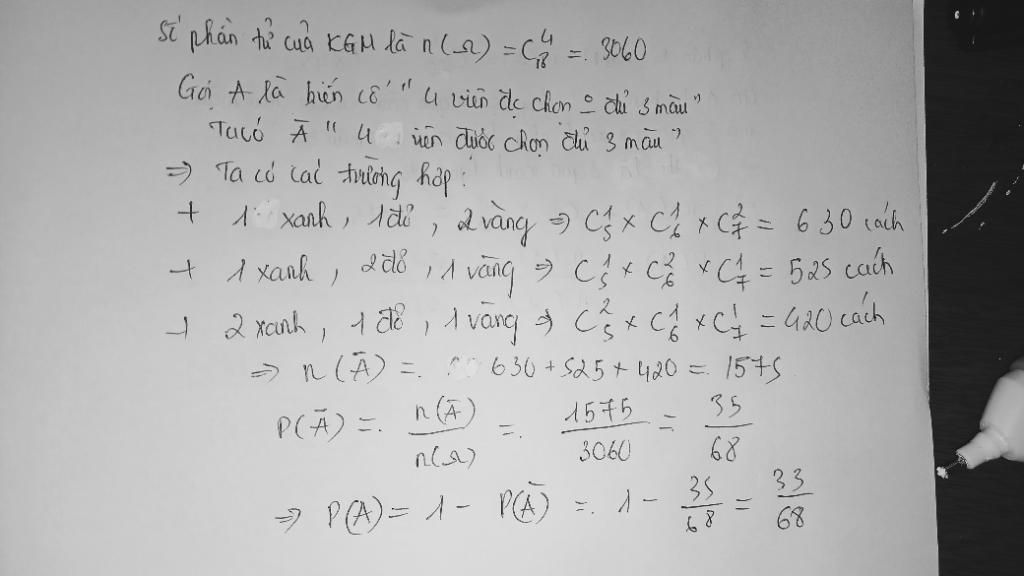 Số phần tử của KGM là n(Ω) = C₁₈⁴ = 3060
Gọi A là biến cố "4 viên đc chọn o đủ 3 màu"
Ta có Ā "4 viên được chọn đủ 3 màu"
⇒ Ta có các trường hợp:
+ 1 xanh, 1 đỏ, 2 vàng ⇒ C₅¹ × C₆¹ × C₇² = 630 cách
+ 1 xanh, 2 đỏ, 1 vàng ⇒ C₅¹ × C₆² × C₇¹ = 525 cách
+ 2 xanh, 1 đỏ, 1 vàng ⇒ C₅² × C₆¹ × C₇¹ = 420 cách
⇒ n(Ā) = 630 + 525 + 420 = 1575
P(Ā) = n(Ā)/n(Ω) = 1575/3060 = 35/68
⇒ P(A) = 1 - P(Ā) = 1 - 35/68 = 33/68